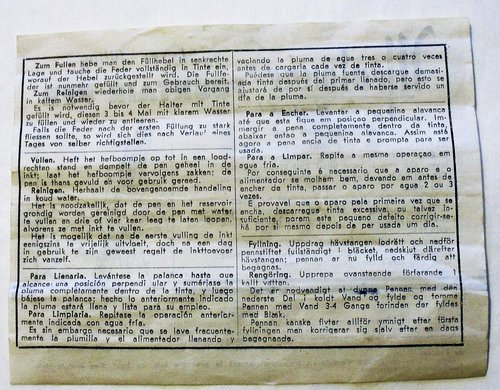 Zum Fullen hebe man den Füllhebel in senkrechte
Lage und tauche die Feder vollständig in Tinte ein,
worauf der Hebel zurückgestellt wird. Die Füllfe-
der ist nunmehr gefüllt und zum Gebrauch bereit.
Zum Reinigen wiederhole man obigen Vorgang
in kaltem Wasser.
Es is notwendig bevor der Halter mit Tinte
gefüllt wird, diesen 3 bis 4 Mal mit klarem Wasser
zu füllen und wieder zu entleeren.
Falls die Feder nach der ersten Füllung zu stark
fliessen sollte, so wird sich dies nach Verlauf eines
Tages von selber richtigstellen.
Vullen. Heft het hefboompje op tot in een lood-
rechten stand en dompelt de pen geheel in de
inkt; laat het hefboompje vervolgens zakken; de
pen is thans gevuld en voor gebruik gereed.
Reinigen. Herhaalt de bovengenoemde handeling
in koud water.
Het is noodzakelijk, dat de pen en het reservoir
grondig worden gereinigd door de pen met water
te vullen en drie of vier keer leeg te laten loopen,
alvorens ze met inkt te vullen.
Het is mogelijk dat na de eerste vulling de inkt
eenigszins te vrijelijk uitvloeit, doch na een dag
in gebruik te zijn geweest regelt de inkttoevoer
zich vanzelf.
Para Llenarla. Levántese la palanca hasta que
alcance una posición perpendicular y sumérjase la
pluma completamente dentro de la tinta, y luego
bájese la palanca; hecho lo anteriormente indicado
la pluma estará llena y lista para su empleo.
Para Limpiarla. Repítase la operación anterior-
mente indicada con agua fría.
Es sin embargo necesario que se lave frecuenta-
mente la plumilla y el alimentador llenando y
vaciando la pluma de agua tres o cuatro veces
antes de cargarla cada vez de tinta.
Puédese que la pluma fuente descargue dema-
siada tinta después del primer llenado, pero esto se
ajustará de por sí después de haberse servido un
día de la pluma.
Para a Encher. Levantar a pequenina alavanca
até que esta fique em posiçao perpendicular. Im-
mergir a pena completamente dentro da tinta,
abaixar entao a pequenina alavanca. Assim está
agora a pena encia de tinta e prompta para ser
usada.
Para a Limpar. Repita a mesma operaçao em
agua fria.
Por conseguinte é necessario que a aparo e o
alimentador se molhem bem, devendo em antes de
encher de tinta, passar o aparo por agua 2 ou 3
vezes.
E provavel que o aparo pela primeira vez que se
encha, descarregue tinta excessiva, ou talvez in-
suficiente, porem este pequeno defeito corrigir-se-
há por si mesmo depois de per usada um dia.
Fyllning. Uppdrag hävstangen lodrätt och nedför
pennstiftet fullständigt i bläcket, nedskjut därefter
hävstangen; pennan är nu fylld och färdig att
begagnas.
Rengöring. Upprepa ovanstaende förfarande i
kallt vatten.
Det er nodvendigt at Pennan med den
nederste Del i koldt Vand og fylde og tomme
Pennen med Vand 3-4 Gange forinden der fyldes
med Blæk.
Pennan kanske flyter alltför ymnigt efter första
fyllningen men korrigerar sig sjalv efter en dags
begagnande.